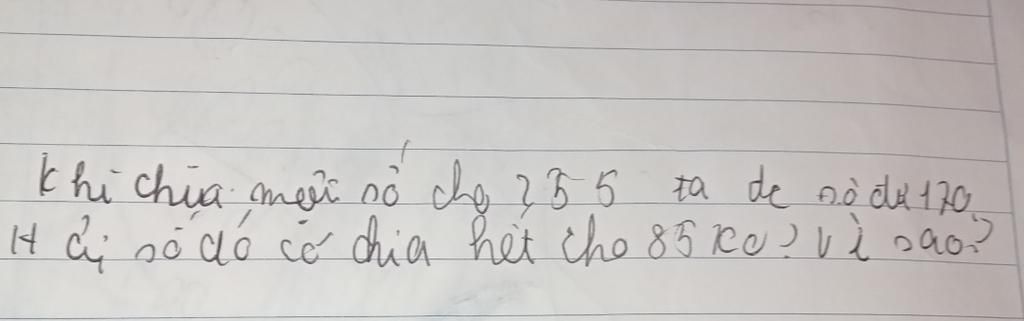 Khi chia một số cho 255 ta đc số dư 170.
Hỏi số đó có chia hết cho 85 ko? Vì sao?